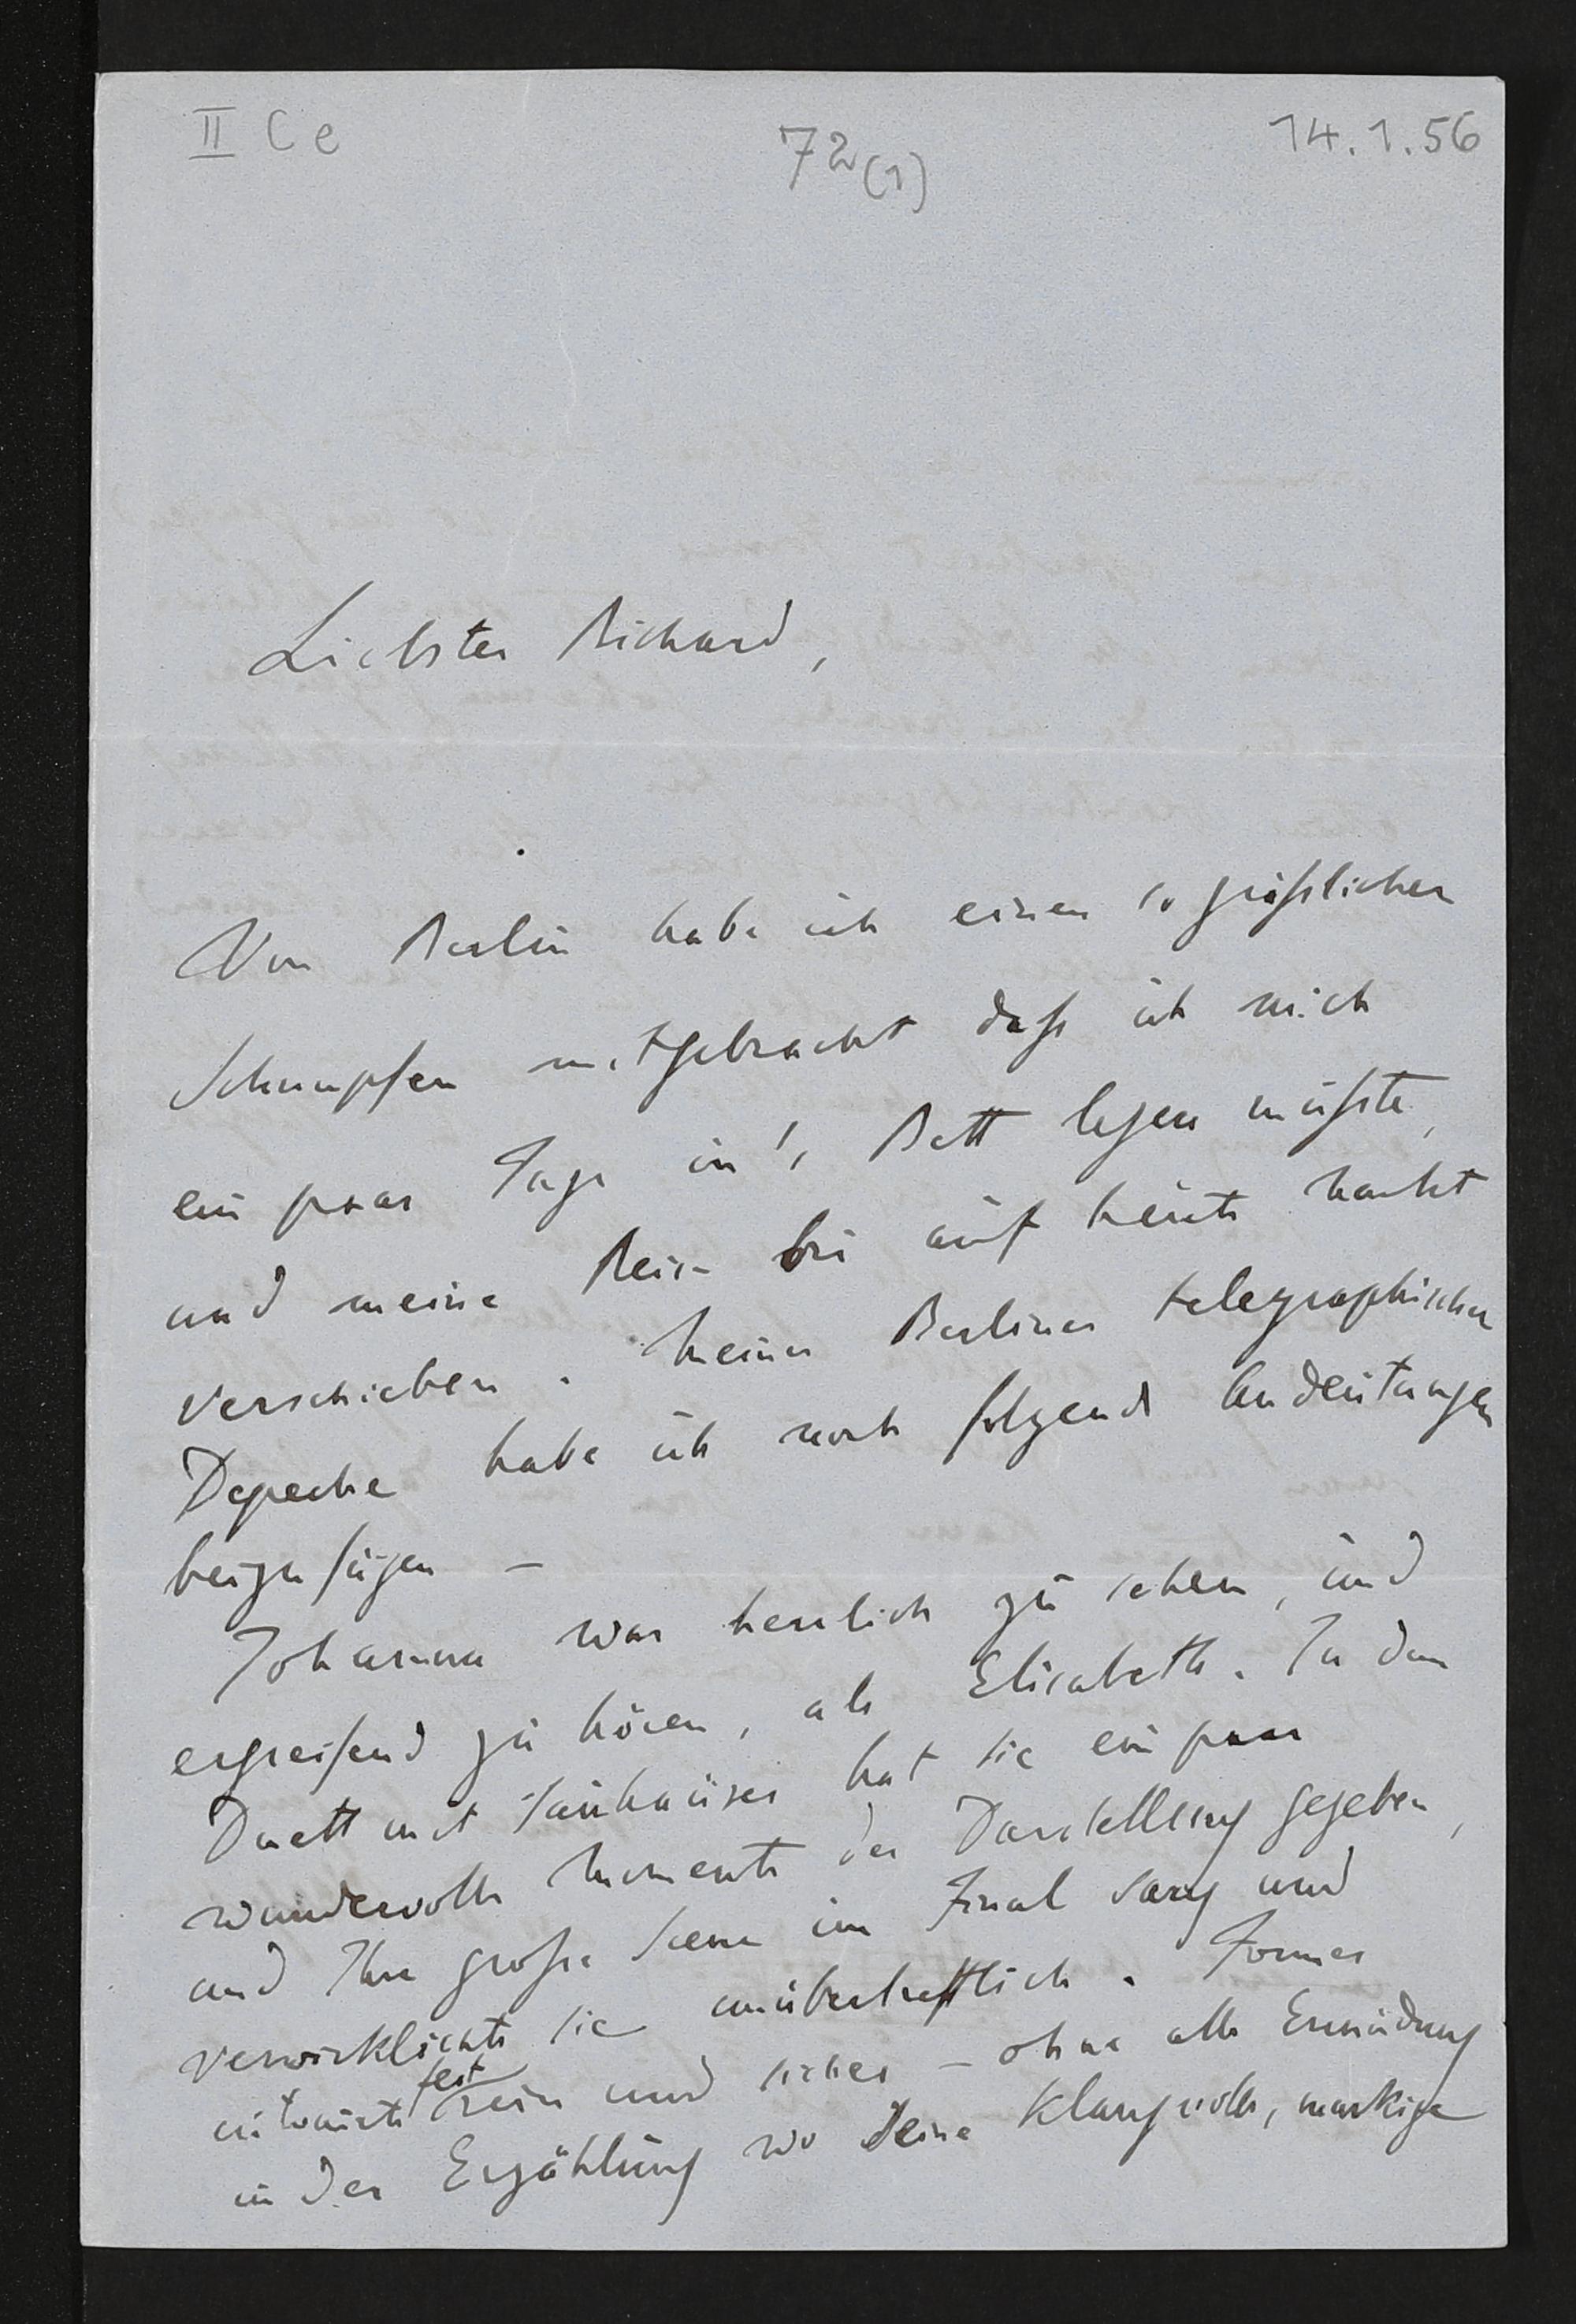 II C e
72(1)
14.1.56
Liebster Richard,
Von Berlin habe ich einen so gräßlichen
Schnupfen mitgebracht daß ich mich
ein paar Tage in's Bett legen mußte,
und meine Reise bis auf heute Nacht
verschieben. Meiner Berliner telegraphischen
Depeche habe ich noch folgende Andeutungen
beizufügen –
Johanna war herrlich zu sehen, und
ergreifend zu hören, als Elisabeth. In dem
Duett mit Tanhaüser hat sie ein paar
wundervolle Momente der Darstellung gegeben,
und Ihre große Scene im Final sang und
verwirklichte sie unübertrefflich. Formes
intonirte fest rein und sicher – ohne alle Ermüdung
in der Erzählung wo seine klangvolle, markige